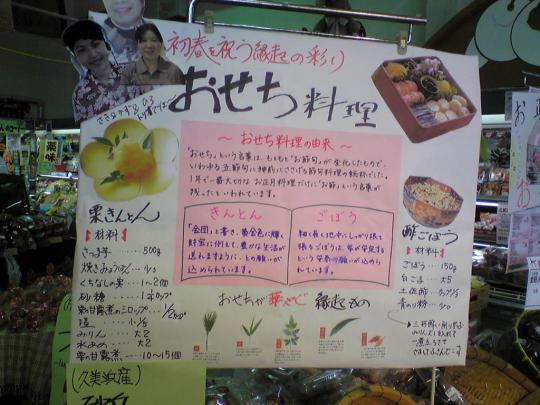 初春を祝う縁起の彩り
おせち料理
～おせち料理の由来～
「おせち」という言葉は、もともと「お節句」が変化したもので、
いわゆる五節句に神前にささげる節句料理の総称でした。
1年で一番大切なお正月料理だけに「お節」という言葉が
残ったといわれています。
きんとん
「金団」と書き、黄金色に輝く
財宝に例えて、豊かな生活が
送れますように、との願いが
込められています。
ごぼう
細く長く地中にしっかり根を
張るごぼうは、家が安定する
という栄養の願いが込めら
れています。
おせちが華やぐ縁起もの
栗きんとん
材料
さつま芋 500g
焼きみょうばん 少々
くちなしの実 1～2個
砂糖 1/2カップ
栗の甘露煮のシロップ 1/2カップ
塩 小1/5
みりん 大2
水あめ 大2
栗の甘露煮 10～15個
酢ごぼう
材料
ごぼう 150g
白ごま 大5
土佐酢 カップ1/2
青のり粉 少々
(久美浜産)
薬味